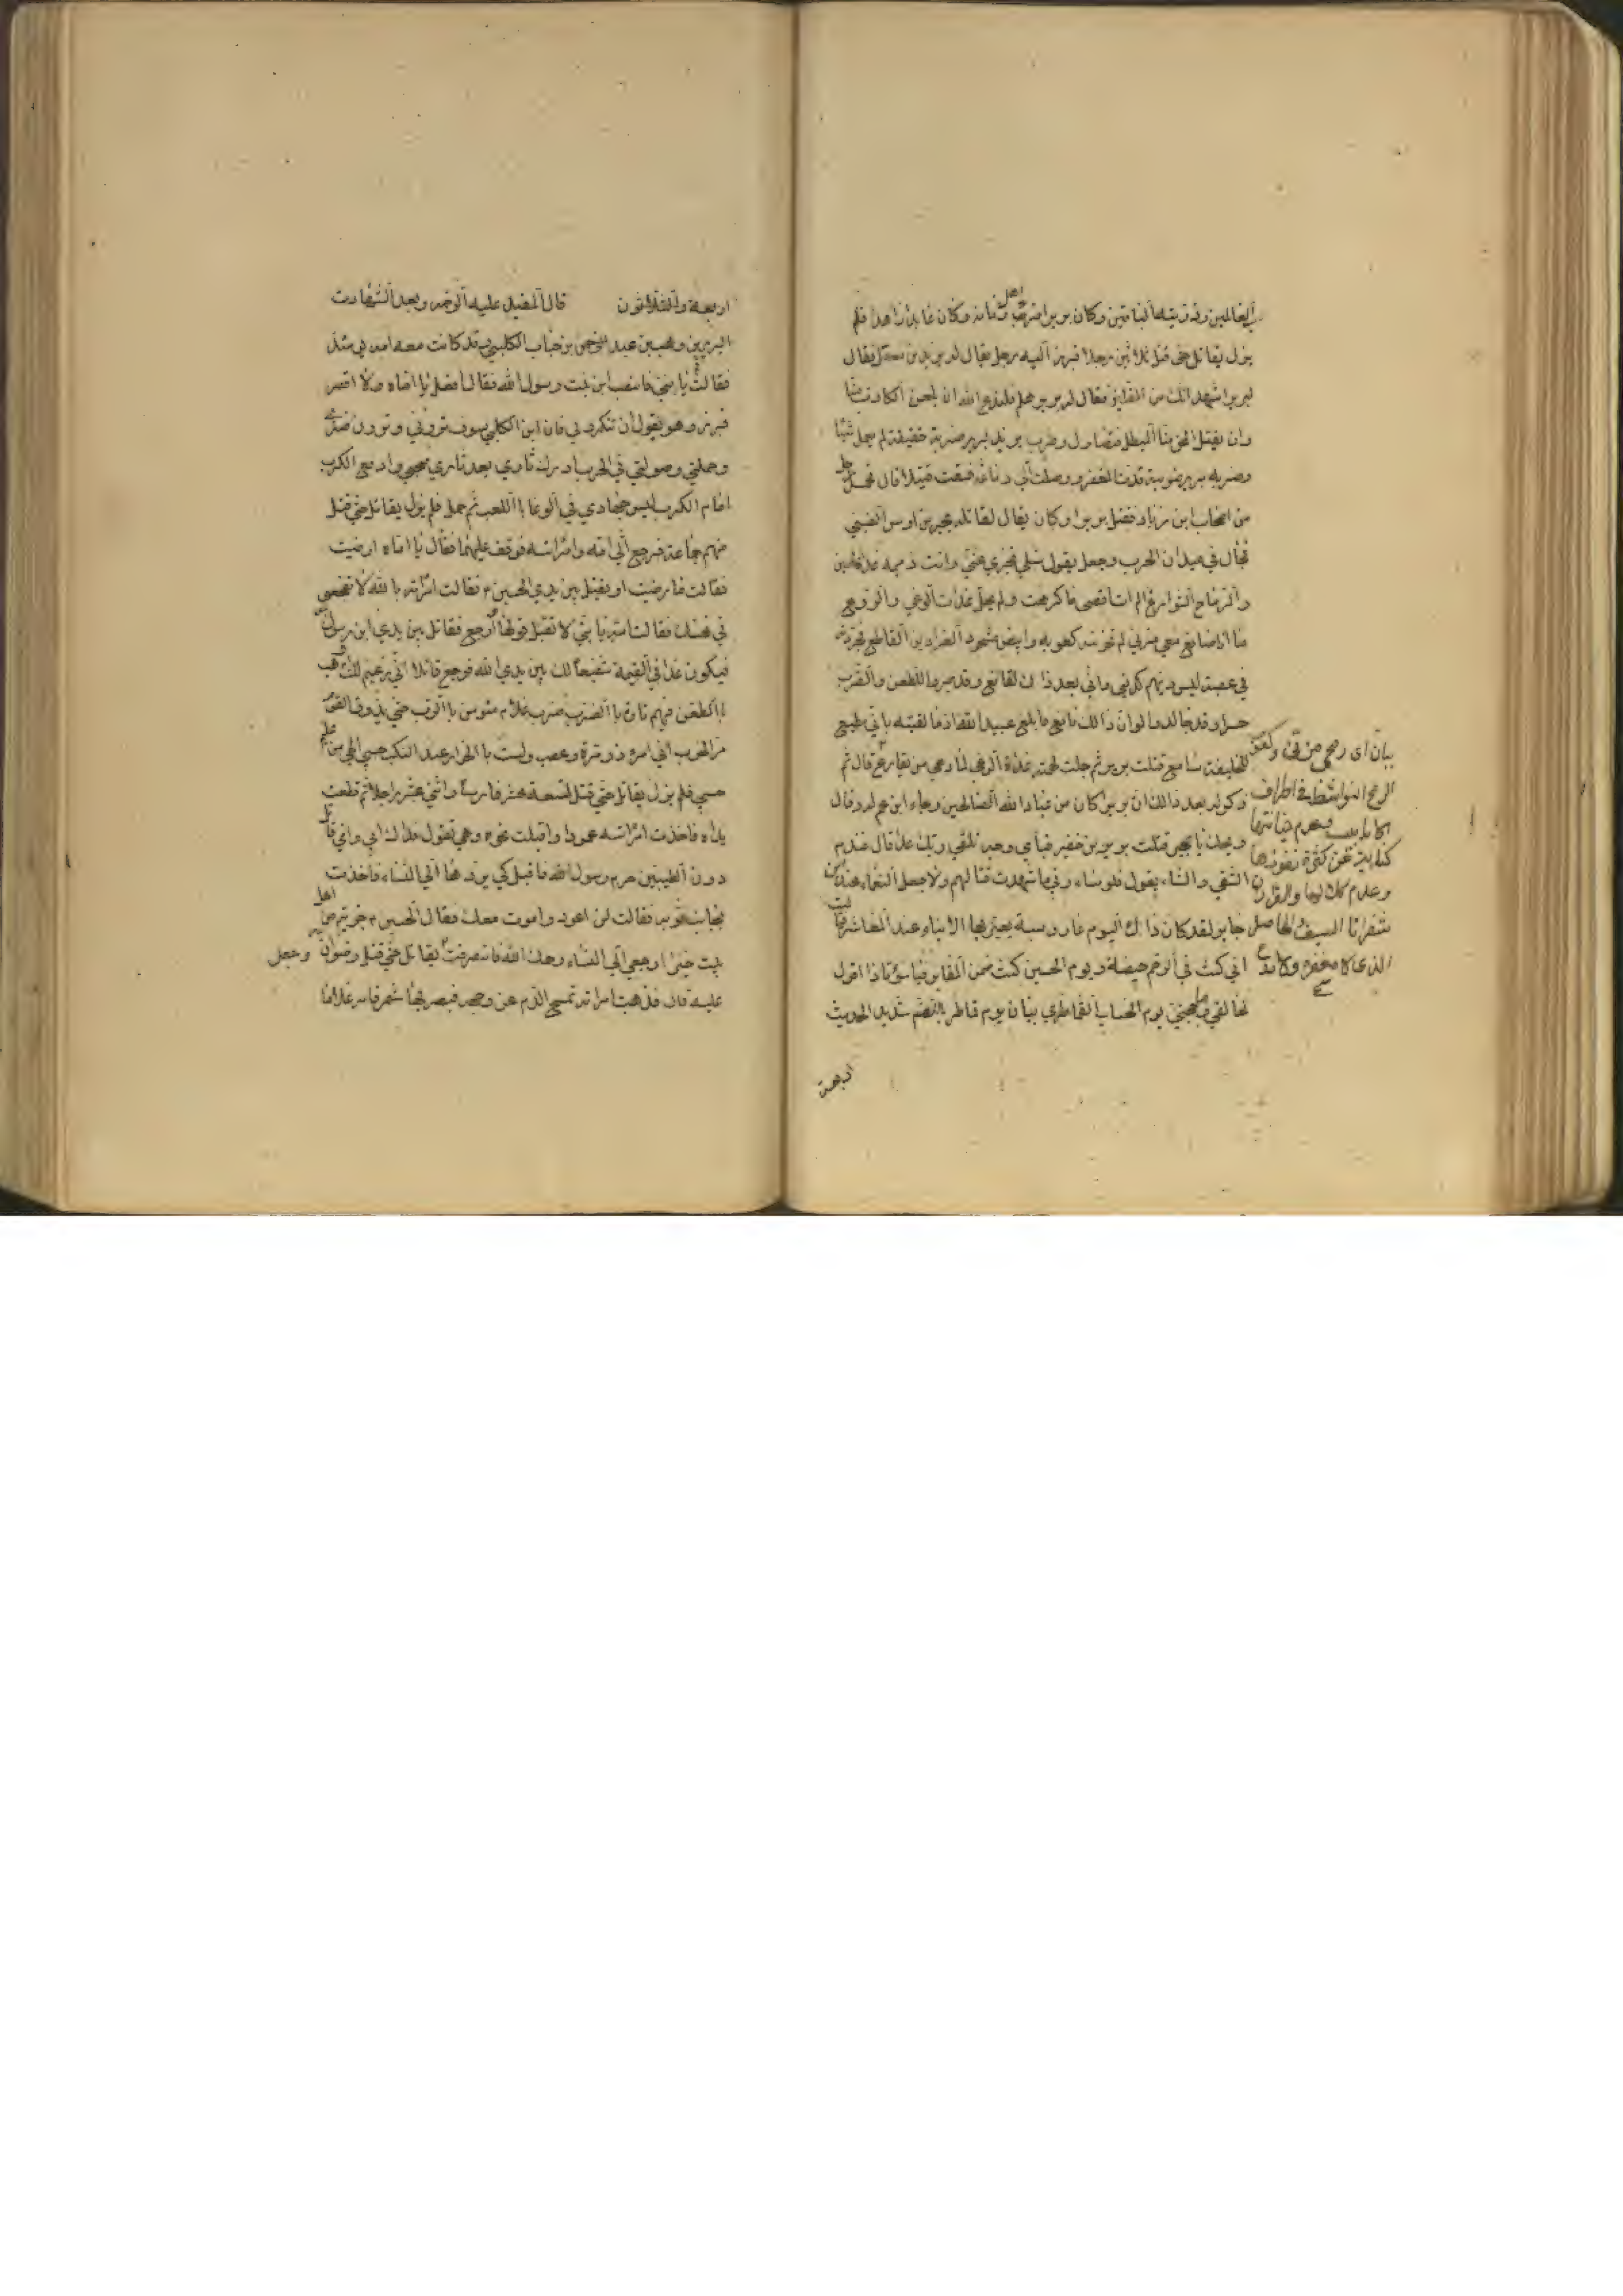 العالمين وذريته الباقين وكان برير اقرء اهل زمانه وكان عابدا زاهدا فلم
يزل يقاتل حتى قتل ثلاثين رجلا فبرز اليه رجل يقال له يزيد بن معقل فقال
لبرير اشهد انك من المضلين فقال له برير هلم فلندع الله ان يلعن الكاذب منا
وان يقتل المحق منا المبطل فتصاول وضرب يزيد لبرير ضربة خفيفة لم يعمل شيئا
وضربه برير ضربة قدت المغفر ووصلت الى دماغه فسقط قتيلا قال فحمل رجل
من اصحاب ابن زياد فقتل بريرا وكان يقال لقاتله بحير بن اوس الضبي
فجال في ميدان الحرب وجعل يقول سلي تخبري عني وانت ذميمة غداة حسين
والرماح الشوارع الم ات اقصى ما كرهت ولم يحل غداة الوغى والروع
ما انا صانع معي مزني لم تخنه كعوبه وابيض مشحوذ الغرارين القاطع فجردته
في عصبة ليس دينهم كديني واني بعد ذاك لقانع وقد صبروا للطعن والضرب
حسرا وقد جالدوا لو ان ذالك نافع فابلغ عبيد الله اذ ما لقيته باني مطيع
للخليفة سامع قتلت برير ثم جلت لهمة غداة الوغى لما دعى من يقارع قال ثم
ذكر له بعد ذالك ان بريرا كان من عباد الله الصالحين وجاء ابن عم له وقال
ويحك يا بحير قتلت برير بن خضير فباي وجه تلقى ربك غدا قال فندم
الشقي وانشاء يقول فلو شاء ربي ما شهدت قتالهم ولا جعل النعماء عند ابن
جابر لقد كان ذاك اليوم عارا وسبة يعير بها الابناء عند المعاشر فيا ليت
اني كنت في الرحم حيضة ويوم الحسين كنت ضمن المقابر فيا سوءتا ماذا اقول
لخالقي وما حجتي يوم الحساب القماطري بيان يوم قماطر بالضم شديد الحديث
اربعة
بيان اى رمحى من
الرمح
كناية عن كثرة نفوذها
شفرتا السيف
اربعة والثلاثون قال المفيد عليه الرحمه وبعد الشهادت
البرير وهب بن عبد الله بن حباب الكلبي قد كانت معه امه يومئذ
فقالت قم يا بني فانصر ابن بنت رسول الله فقال افعل يا اماه ولا اقصر
فبرز وهو يقول ان تنكروني فانا ابن الكلبي سوف تروني وترون ضربي
وحملتي وصولتي في الحرب ادرك ثاري بعد ثاري صحبي وادفع الكرب
امام الكرب ليس جهادي في الوغا باللعب ثم حمل فلم يزل يقاتل حتى قتل
منهم جماعة فرجع الى امه وامراته فوقف عليهما فقال يا اماه ارضيت
فقالت ما رضيت او يقتل بين يدي الحسين ع فقالت امراته بالله لا تفجعني
في نفسك فقالت امه يا بني لا تقبل قولها وارجع فقاتل بين يدي ابن رسول الله
فيكون غدا في القيمة شفيعا لك بين يدي الله فرجع قائلا اني زعيم لك ام وهب
بالطعن فيهم تارة بالضرب ضرب غلام مؤمن بالرب حتى يذوق القوم
مر الحرب اني امرء ذو مرة وعصب ولست بالخوار عند النكب حسبي الهي من عليم
حسبي فلم يزل يقاتل حتى قتل تسعة عشر فارسا واثنى عشر راجلا ثم قطعت
يداه فاخذت امراته عمودا واقبلت نحوه وهي تقول فداك ابي وامي قاتل
دون الطيبين حرم رسول الله فاقبل كي يردها الى النساء فاخذت
بجانب ثوبه فقالت لن اعود واموت معك فقال الحسين ع جزيتم من اهل
بيت خيرا ارجعي الى النساء رحمك الله فانصرفت وجعل يقاتل حتى قتل رضوان الله
عليه قال فذهبت امراته تمسح الدم عن وجهه فبصر بها شمر فامر غلاما